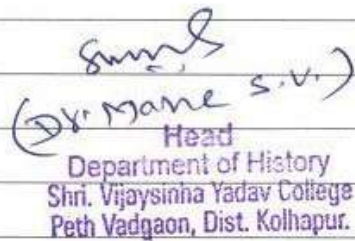 (Dr. Mane S.V.)
Head
Department of History
Shri. Vijaysinha Yadav College
Peth Vadgaon, Dist. Kolhapur.